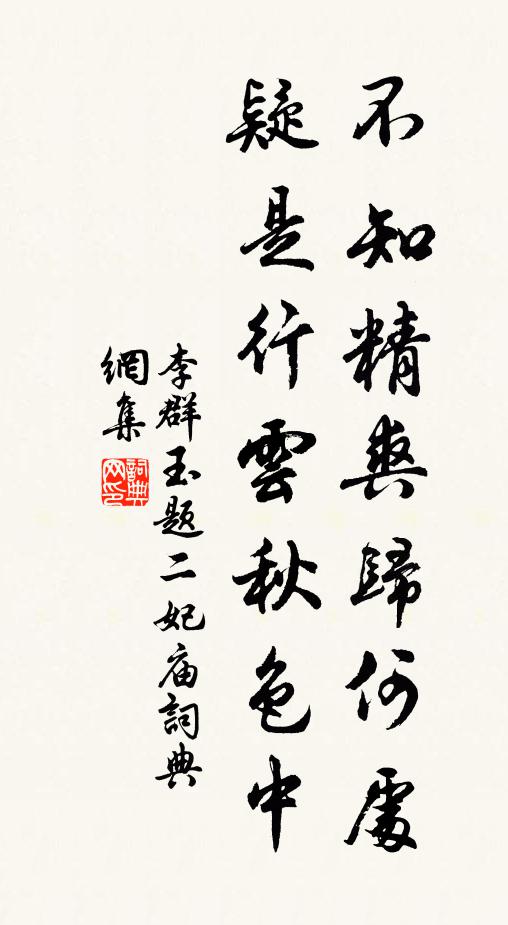 不知精爽歸何處
疑是行雲秋色中
李群玉题二妃庙詞典
網集
詞典网印